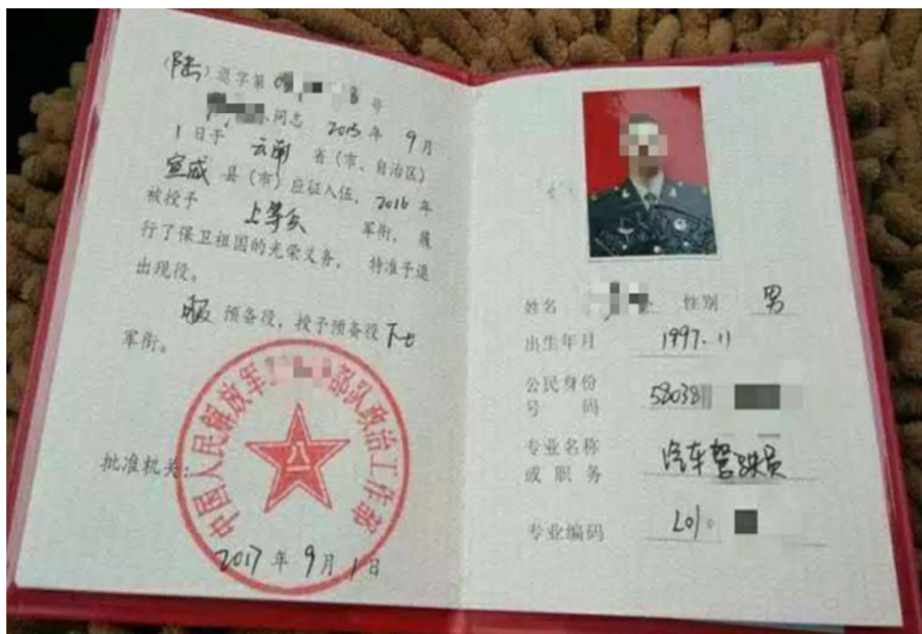 （陆）退字第0 3号
同志 2015年9月
1日于 云南 省（市、自治区）
宣威 县（市）应征入伍，2016年
被授予 上等兵 军衔，履
行了保卫祖国的光荣义务，特准予退
出现役。
服 预备役，授予预备役下士
军衔。
批准机关：
中国人民解放军 部队政治工作部
八一
2017年9月1日
姓名 性别 男
出生年月 1997.11
公民身份
号码 58038
专业名称
或职务 汽车驾驶员
专业编码 L01